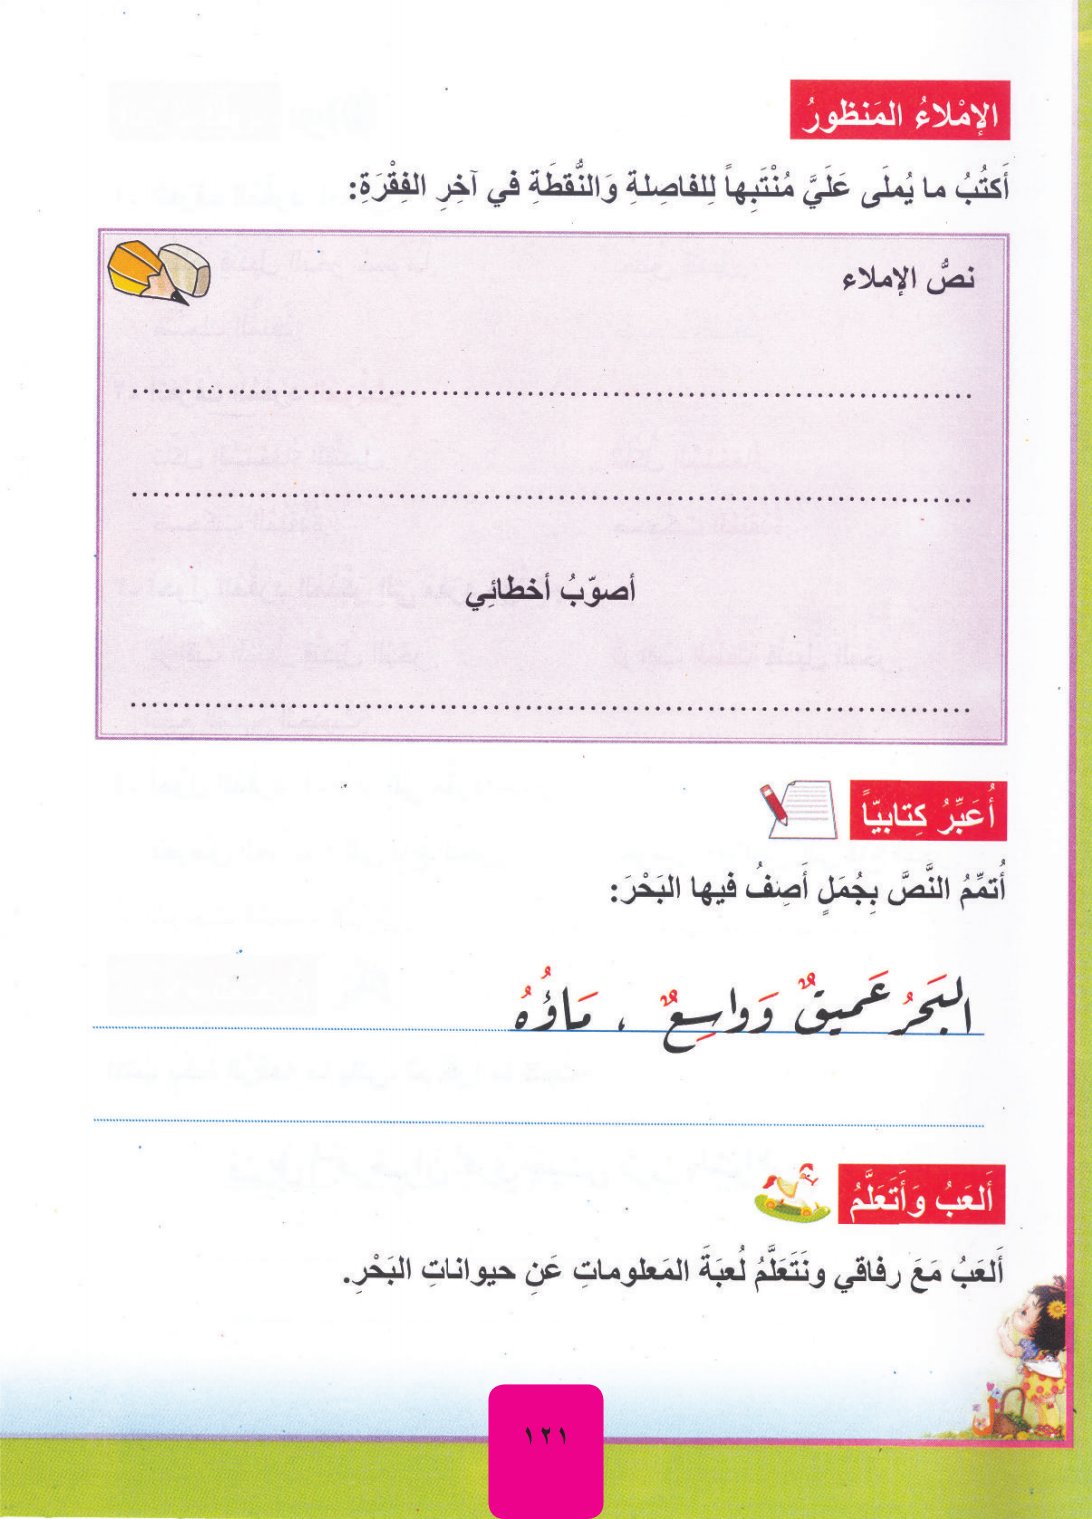 الإمْلاءُ المَنظورُ
أَكتُبُ ما يُملَى عَلَيَّ مُنْتَبِهاً لِلفاصِلةِ وَالنُّقطَةِ في آخِرِ الفِقْرَةِ:
نصُّ الإملاء
أصوّبُ أخطائِي
أُعَبِّرُ كِتابيّاً
أُتمِّمُ النَّصَّ بِجُمَلٍ أَصِفُ فيها البَحْرَ:
البَحرُ عَميقٌ وَواسِعٌ ، مَاؤُهُ
أَلعَبُ وَأَتَعَلَّمُ
أَلعَبُ مَعَ رفاقي ونَتَعَلَّمُ لُعبَةَ المَعلوماتِ عَنِ حيواناتِ البَحْرِ.
١٢١